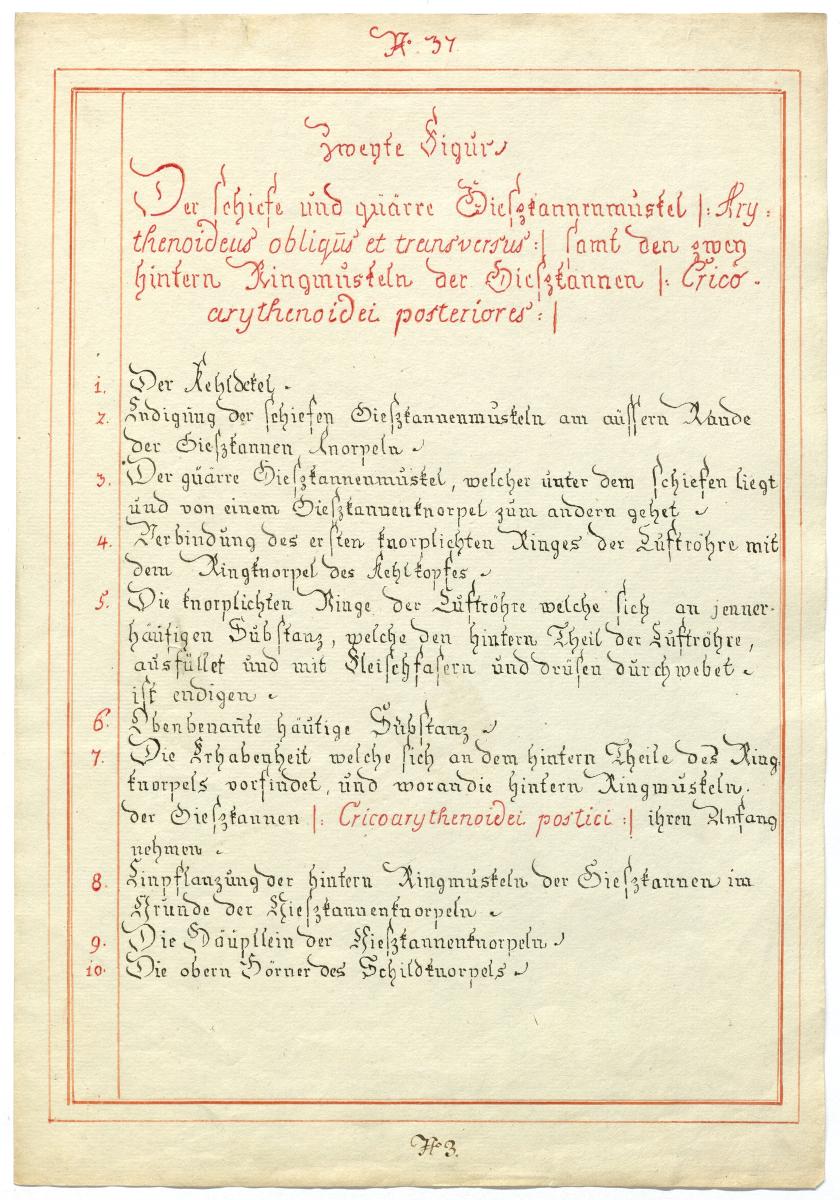 No. 37
Zweyte Figur
Der schiefe und quärre Gieszkannenmuskel |: Ary-
thenoideus obliqūs et transversus :| samt den zwey
hintern Ringmuskeln der Gieszkannen |: Crico-
arythenoidei posteriores :|
1. Der Kehldekel.
2. Endigung der schiefen Gieszkannenmuskeln am äüssern Rande
der Gieszkannen knorpeln.
3. Der quärre Gieszkannenmuskel, welcher unter dem schiefen liegt
und von einem Gieszkannenknorpel zum andern gehet.
4. Verbindung des ersten knorplichten Ringes der Luftröhre mit
dem Ringknorpel des Kehlkopfes.
5. Die knorplichten Ringe der Luftröhre welche sich an jenner
häutigen Substanz, welche den hintern Theil der Luftröhre,
ausfüllet und mit Fleischfasern und drüsen durchwebet
ist endigen.
6. Obenbenañte häutige Substanz.
7. Die Erhabenheit welche sich an dem hintern Theile des Ring
knorpels vorfindet, und woran die hintern Ringmuskeln
der Gieszkannen |: Cricoarythenoidei postici :| ihren Anfang
nehmen.
8. Einpflanzung der hintern Ringmuskeln der Gieszkannen im
Grunde der Gieszkannenknorpeln.
9. Die Häüptlein der Gieszkannenknorpeln.
10. Die obern Hörner des Schildknorpels.
No 3.